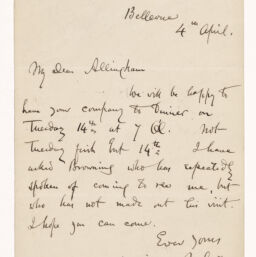 Bellevue
4th April.
My dear Allingham
We will be happy to
have your company to dinner on
Tuesday 14th at 7 Ol. Not
Tuesday first but 14th. I have
asked Browning who has repeatedly
spoken of coming to see me, but
who has not made out his visit.
I hope you can come.
Ever yours